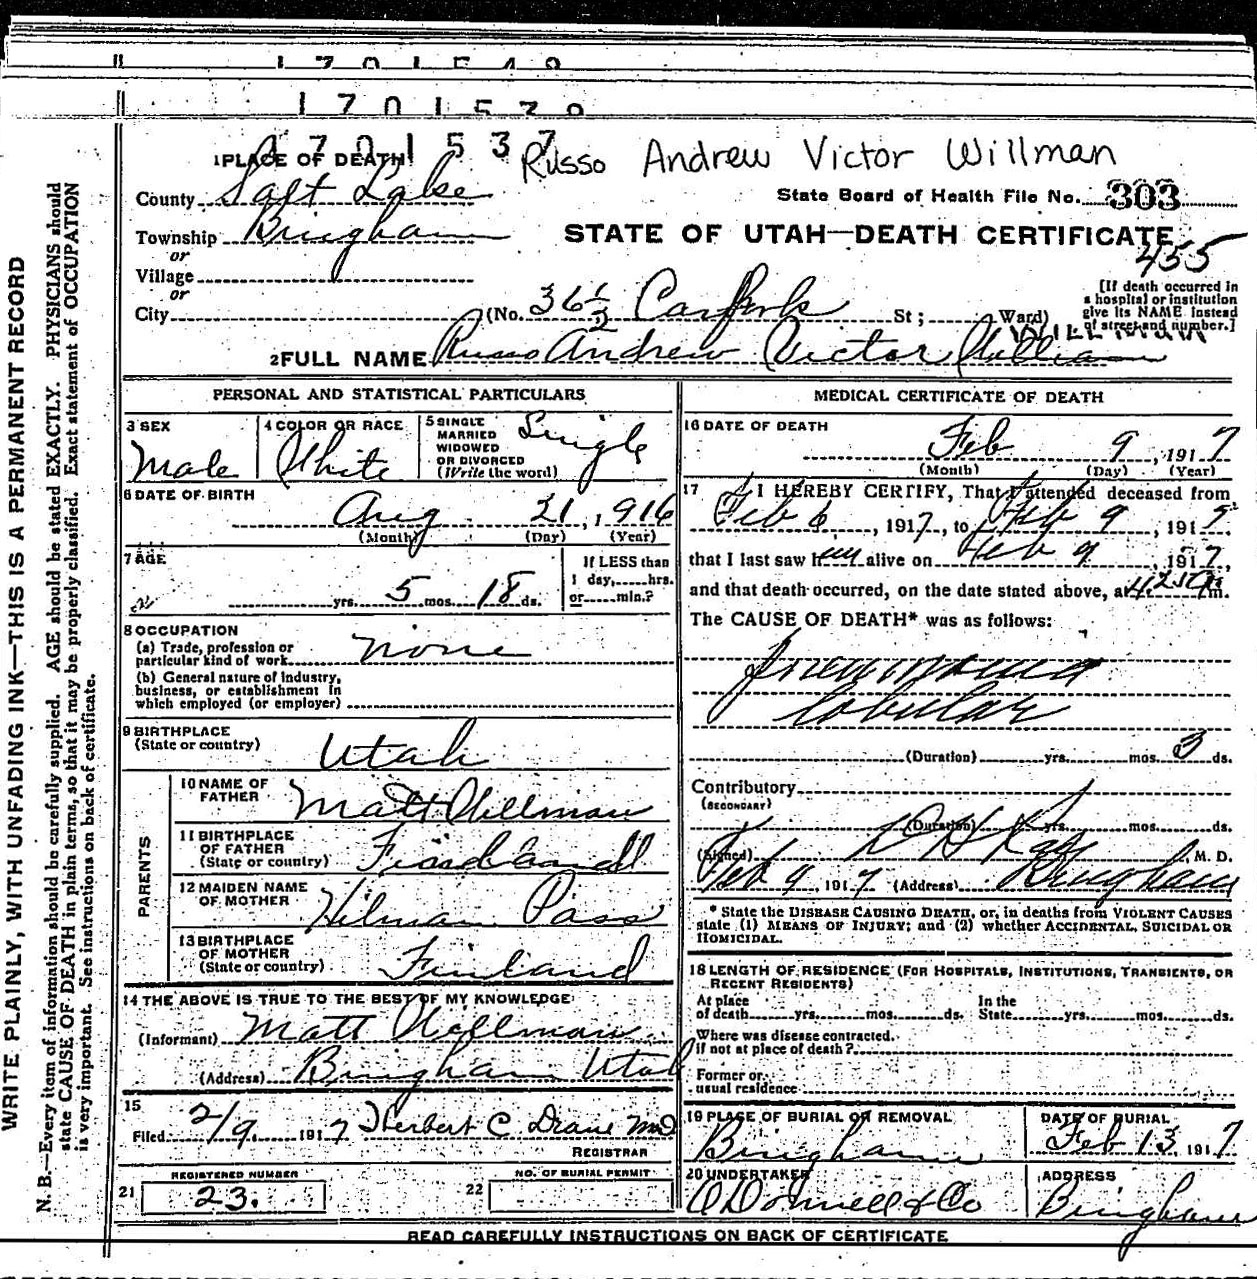 1701537
Russo Andrew Victor Willman
1 PLACE OF DEATH
County Salt Lake
State Board of Health File No. 303
Township Bingham
STATE OF UTAH—DEATH CERTIFICATE
455
or
Village
or
City (No. 36 1/2 Carrfork St; Ward)
[If death occurred in
a hospital or institution
give its NAME instead
of street and number.]
WILLMAN
2 FULL NAME Russo Andrew Victor William
PERSONAL AND STATISTICAL PARTICULARS
3 SEX
Male
4 COLOR OR RACE
White
5 SINGLE
MARRIED
WIDOWED
OR DIVORCED
(Write the word)
Single
6 DATE OF BIRTH
Aug 21, 1916
(Month) (Day) (Year)
7 AGE
yrs. 5 mos. 18 ds.
If LESS than
1 day, hrs.
or min.?
8 OCCUPATION
(a) Trade, profession or
particular kind of work None
(b) General nature of industry,
business, or establishment in
which employed (or employer)
9 BIRTHPLACE
(State or country) Utah
PARENTS
10 NAME OF
FATHER Matt Willman
11 BIRTHPLACE
OF FATHER
(State or country)
12 MAIDEN NAME
OF MOTHER Hilman Pass
13 BIRTHPLACE
OF MOTHER
(State or country) Finland
14 THE ABOVE IS TRUE TO THE BEST OF MY KNOWLEDGE
(Informant) Matt Willman
(Address) Bingham Utah
15
Filed 2/9 1917 Herbert C Drane MD
REGISTRAR
REGISTERED NUMBER
21 23.
NO. OF BURIAL PERMIT
22
MEDICAL CERTIFICATE OF DEATH
16 DATE OF DEATH
Feb 9, 1917
(Month) (Day) (Year)
17 I HEREBY CERTIFY, That I attended deceased from
Feb 6, 1917, to Feb 9, 1917
that I last saw him alive on Feb 9, 1917,
and that death occurred, on the date stated above, at m.
The CAUSE OF DEATH* was as follows:
Pneumonia
lobular
(Duration) yrs. mos. 3 ds.
Contributory
(SECONDARY)
(Duration) yrs. mos. ds.
(Signed) M. D.
Feb 9, 1917 (Address) Bingham
* State the DISEASE CAUSING DEATH, or, in deaths from VIOLENT CAUSES
state (1) MEANS OF INJURY; and (2) whether ACCIDENTAL, SUICIDAL OR
HOMICIDAL.
18 LENGTH OF RESIDENCE (FOR HOSPITALS, INSTITUTIONS, TRANSIENTS, OR
RECENT RESIDENTS)
At place
of death yrs. mos. ds.
In the
State yrs. mos. ds.
Where was disease contracted.
if not at place of death?
Former or
usual residence
19 PLACE OF BURIAL OR REMOVAL
Bingham
DATE OF BURIAL
Feb 13, 1917
20 UNDERTAKER
O'Donnell & Co
ADDRESS
Bingham
READ CAREFULLY INSTRUCTIONS ON BACK OF CERTIFICATE
WRITE PLAINLY, WITH UNFADING INK—THIS IS A PERMANENT RECORD
N. B.—Every item of information should be carefully supplied. AGE should be stated EXACTLY. PHYSICIANS should
state CAUSE OF DEATH in plain terms, so that it may be properly classified. Exact statement of OCCUPATION
is very important. See instructions on back of certificate.